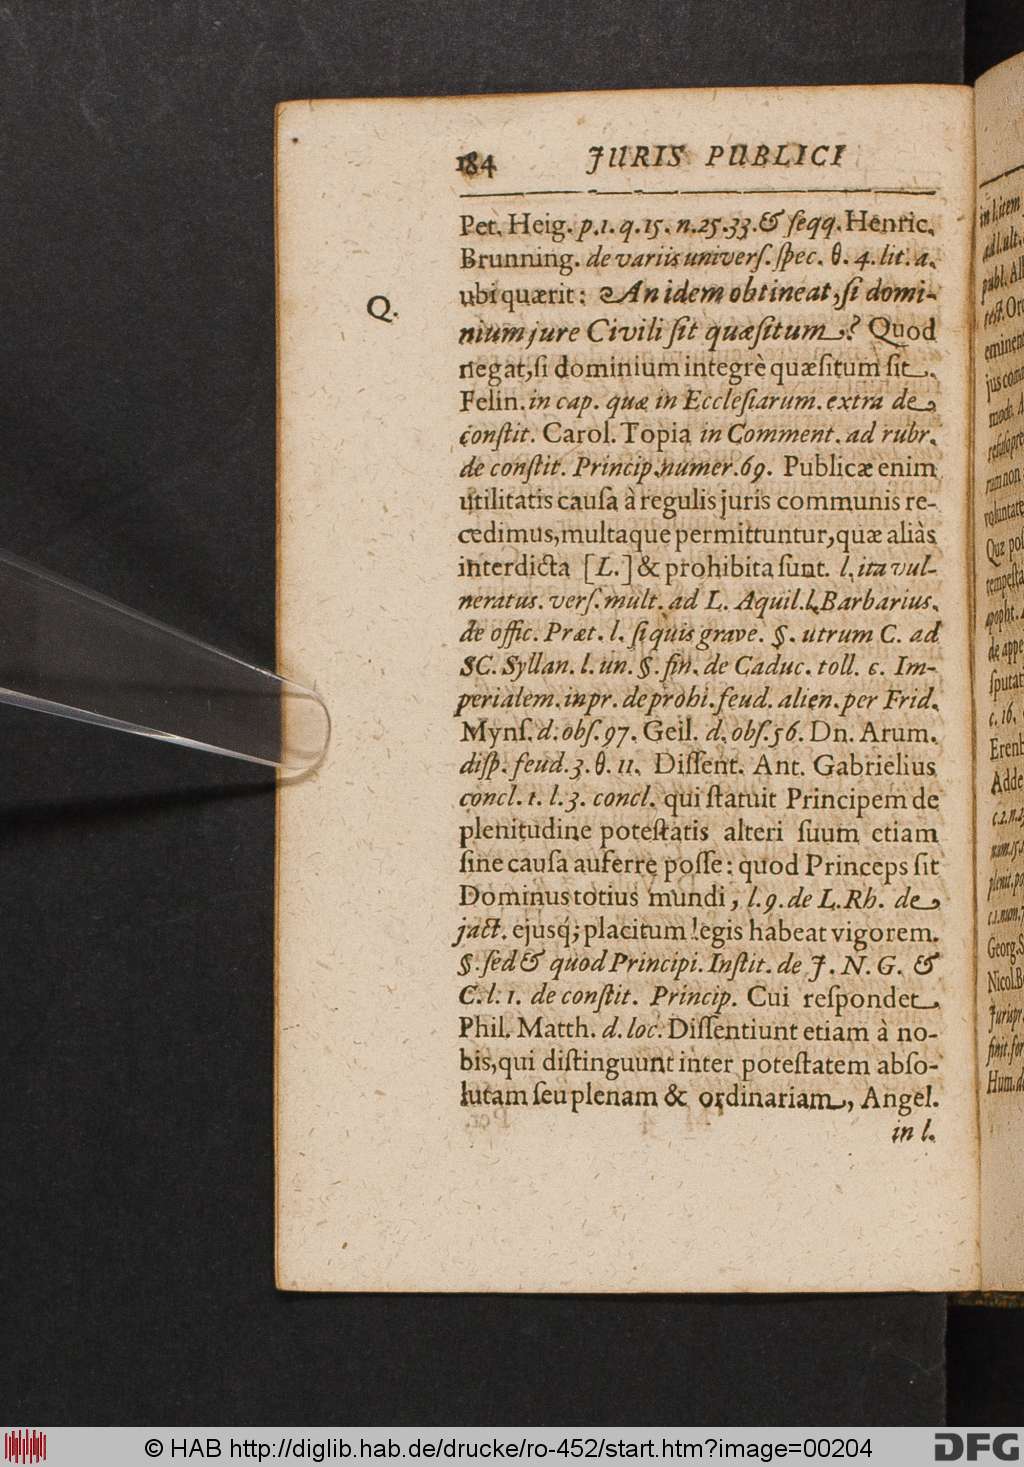 184 JURIS PUBLICI
Pet. Heig. p. 1. q. 15. n. 25. 33. & ſeqq. Henric.
Brunning. de variis univerſ. ſpec. θ. 4. lit. a.
ubi quærit: An idem obtineat, ſi domi-
Q.
nium jure Civili ſit quæſitum? Quod
negat, ſi dominium integrè quæſitum ſit.
Felin. in cap. quæ in Eccleſiarum. extra de
conſtit. Carol. Topia in Comment. ad rubr.
de conſtit. Princip. numer. 69. Publicæ enim
utilitatis cauſa à regulis juris communis re-
cedimus, multaque permittuntur, quæ aliàs
interdicta [L.] & prohibita ſunt. l. ita vul-
neratus. verſ. mult. ad L. Aquil. l. Barbarius.
de offic. Præt. l. ſi quis grave. §. utrum C. ad
SC. Syllan. l. un. §. fin. de Caduc. toll. c. Im-
perialem. in pr. de prohi. feud. alien. per Frid.
Mynſ. d. obſ. 97. Geil. d. obſ. 56. Dn. Arum.
diſp. feud. 3. θ. 11. Diſſent. Ant. Gabrielius
concl. t. l. 3. concl. qui ſtatuit Principem de
plenitudine poteſtatis alteri ſuum etiam
ſine cauſa auferre poſſe: quod Princeps ſit
Dominus totius mundi, l. 9. de L. Rh. de
jact. ejusq́; placitum legis habeat vigorem.
§. ſed & quod Principi. Inſtit. de J. N. G. &
C. l. 1. de conſtit. Princip. Cui reſpondet
Phil. Matth. d. loc. Diſſentiunt etiam à no-
bis, qui diſtinguunt inter poteſtatem abſo-
lutam ſeu plenam & ordinariam, Angel.
in l.
in l. item
ad l. ult.
publ. Al
eminen
jus com
rum non
voluntate
Quæ poſ
tempeſta
de appe
ſputat
c. 16.
Erenb
Adde
c. 2. n.
num. 15.
plenit. po
c. 1. num. 7
Georg. S
Nicol. B
Jurispr.
finit. for
Hum. d
© HAB http://diglib.hab.de/drucke/ro-452/start.htm?image=00204
DFG